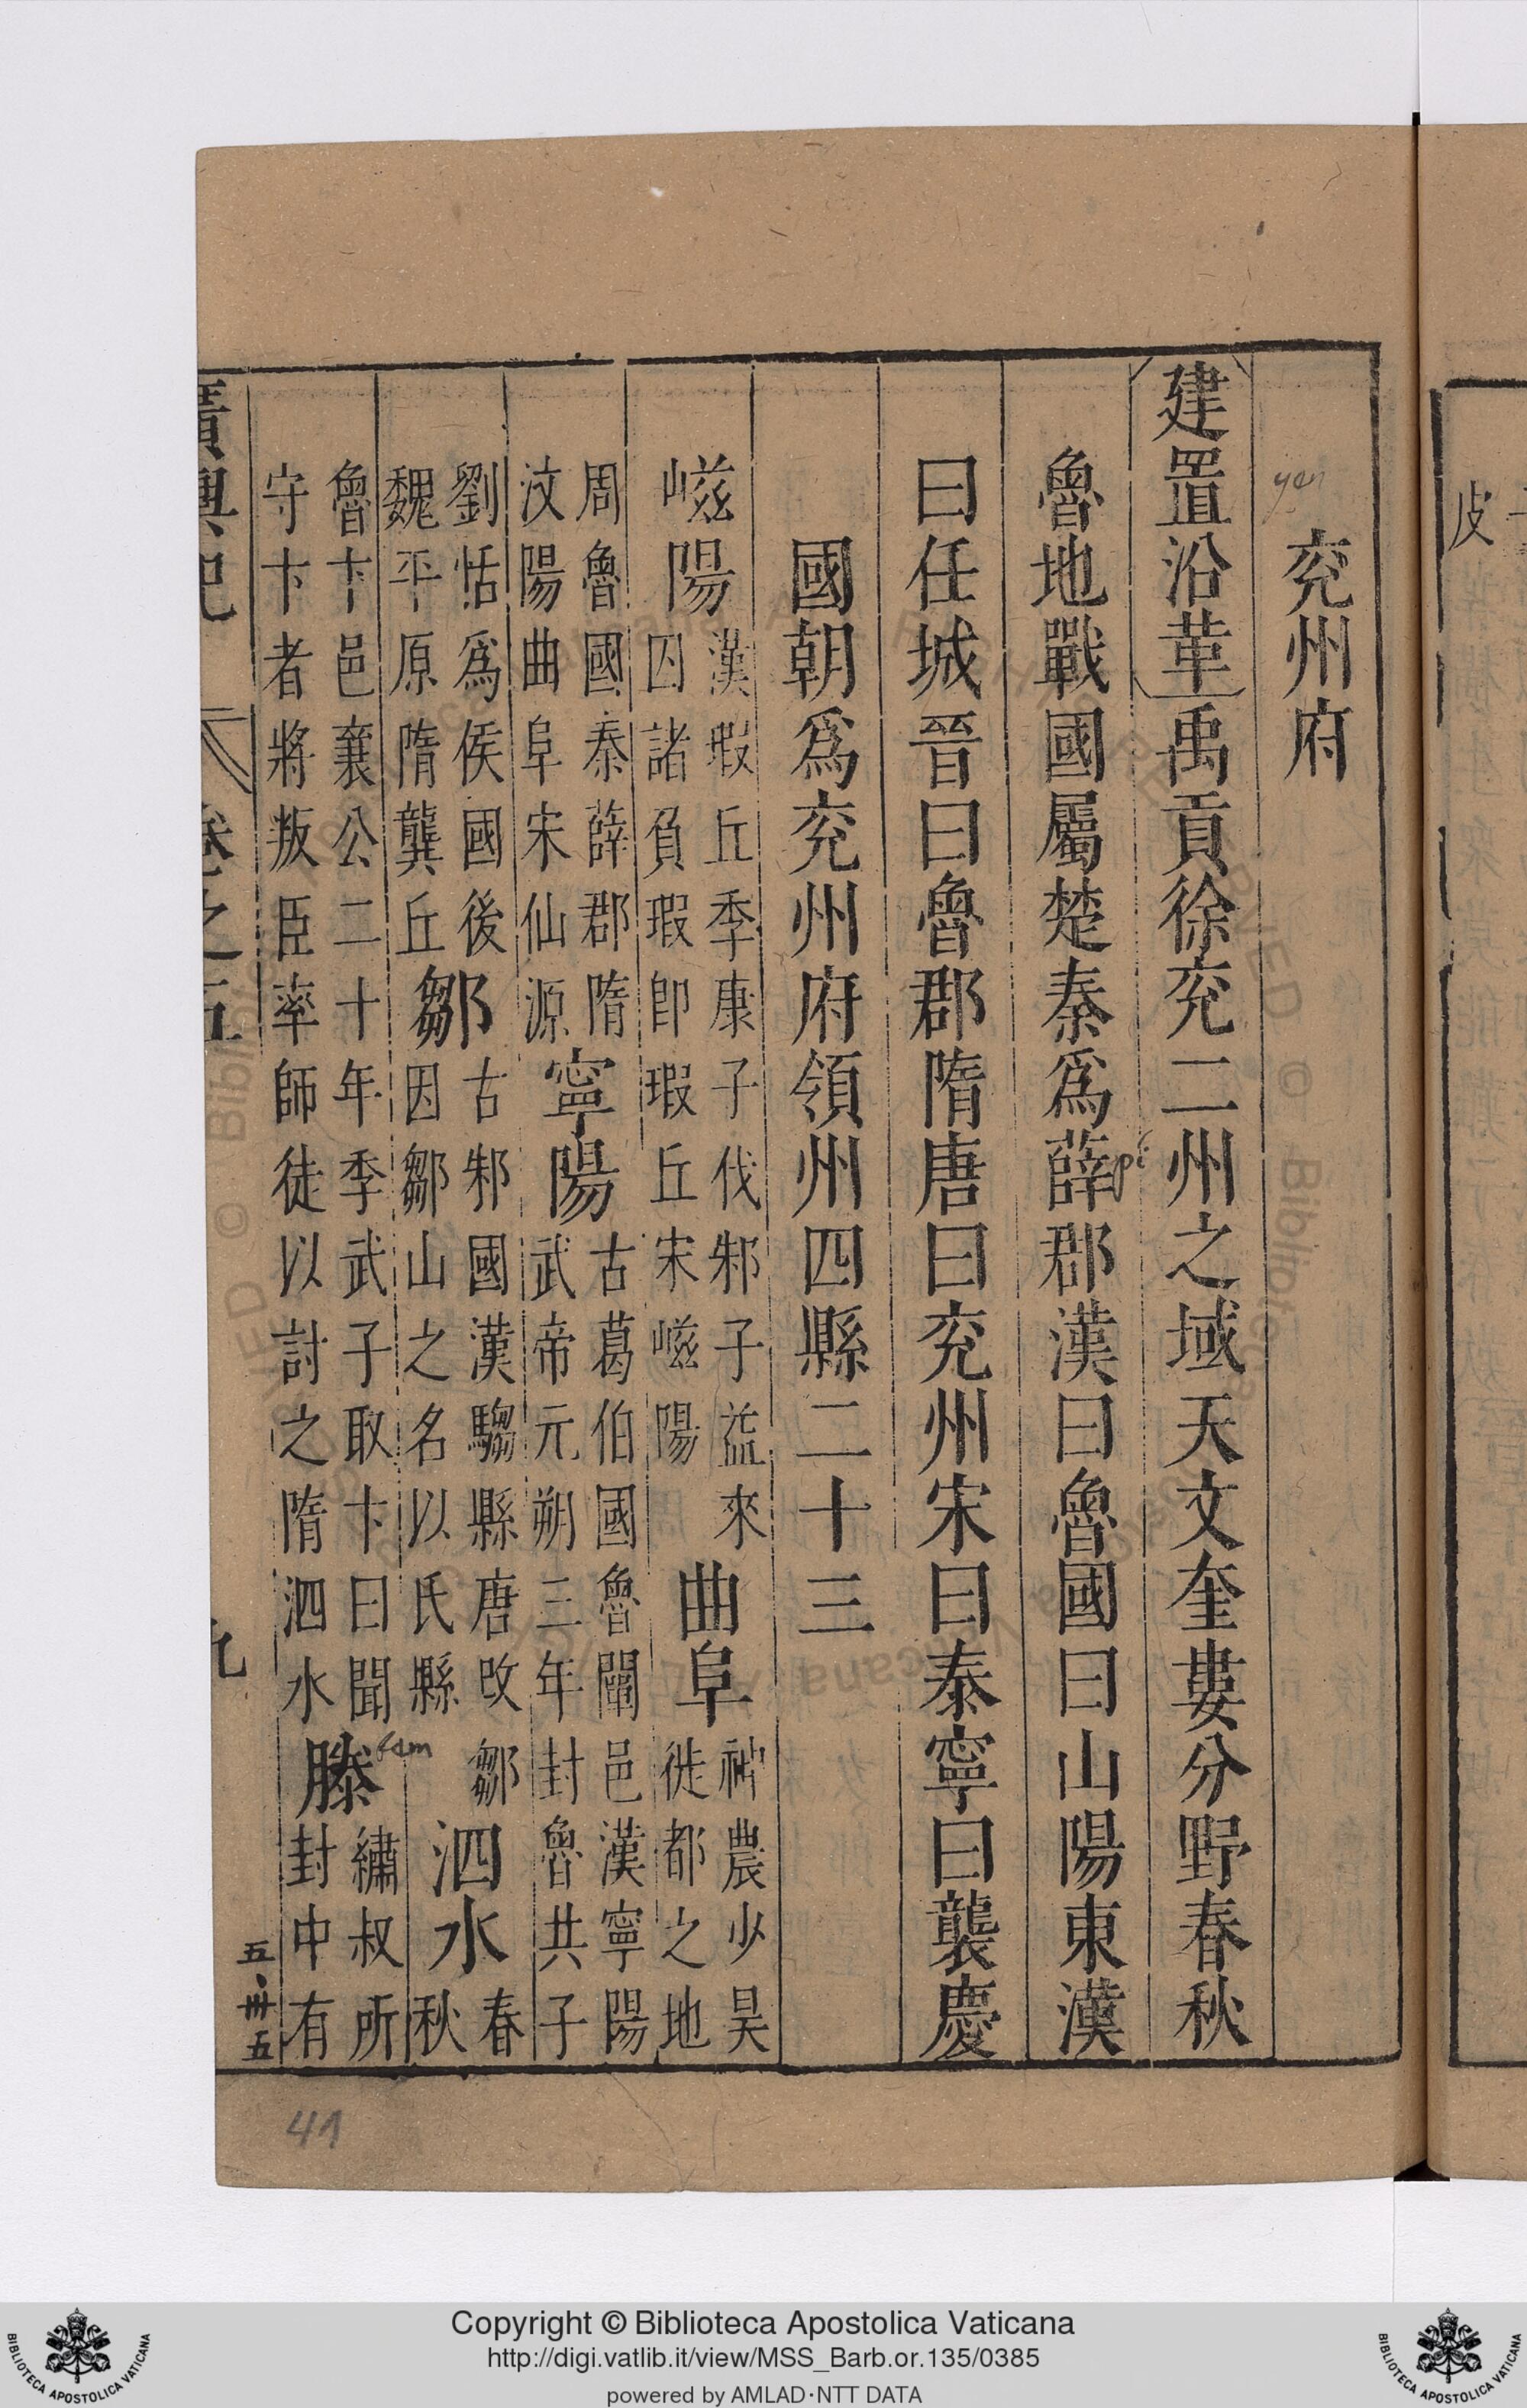 兖州府
yen
建置沿革禹貢徐兖二州之域天文奎婁分野春秋
魯地戰國屬楚秦爲薛郡漢曰魯國曰山陽東漢
pi
曰任城晉曰魯郡隋唐曰兖州宋曰泰寧曰襲慶
國朝爲兖州府領州四縣二十三
嵫陽
漢瑕丘季康子伐邾子益來
囚諸負瑕卽瑕丘宋嵫陽
曲阜
神農少昊
徙都之地
周魯國秦薛郡隋
汶陽曲阜宋仙源
寧陽
古葛伯國魯闡邑漢寧陽
武帝元朔三年封魯共子
劉恬爲侯國後
魏平原隋龔丘
鄒
古邾國漢騶縣唐改鄒
因鄒山之名以氏縣
泗水
春
秋
魯卞邑襄公二十年季武子取卞曰聞
守卞者將叛臣率師徒以討之隋泗水
滕
tam
繡叔所
封中有
廣輿記
卷之五
九
五·卌五
41
皮
Copyright © Biblioteca Apostolica Vaticana
http://digi.vatlib.it/view/MSS_Barb.or.135/0385
powered by AMLAD·NTT DATA
BIBLIOTECA APOSTOLICA VATICANA
BIBLIOTECA APOSTOLICA VATICANA